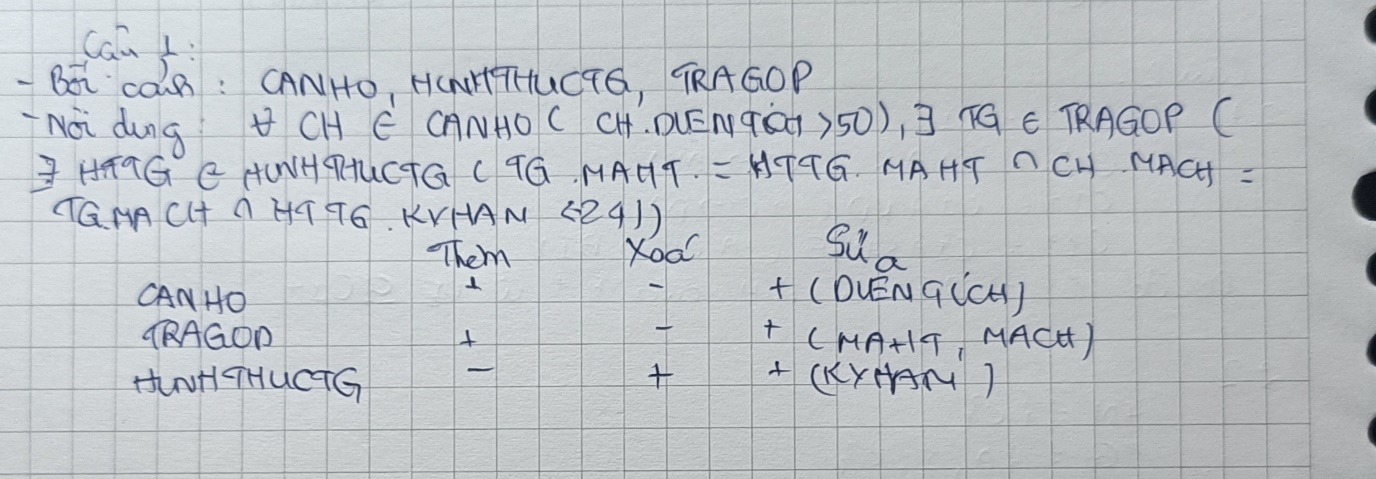 Câu 1:
- Bối cảnh : CANHO, HINHTHUCTG, TRAGOP
- Nội dung : ∀ CH ∈ CANHO ( CH.DIENTICH >50), ∃ TG ∈ TRAGOP (
∃ HTTG ∈ HINHTHUCTG ( TG .MAHT = HTTG. MAHT ∩ CH .MACH =
TG.MACH ∩ HTTG .KYHAN <24))
Them Xoá Sửa
CANHO + - + (DIÊNTÍCH)
TRAGOP + - + (MAHT, MACH)
HINHTHUCTG - + + (KYHAN)